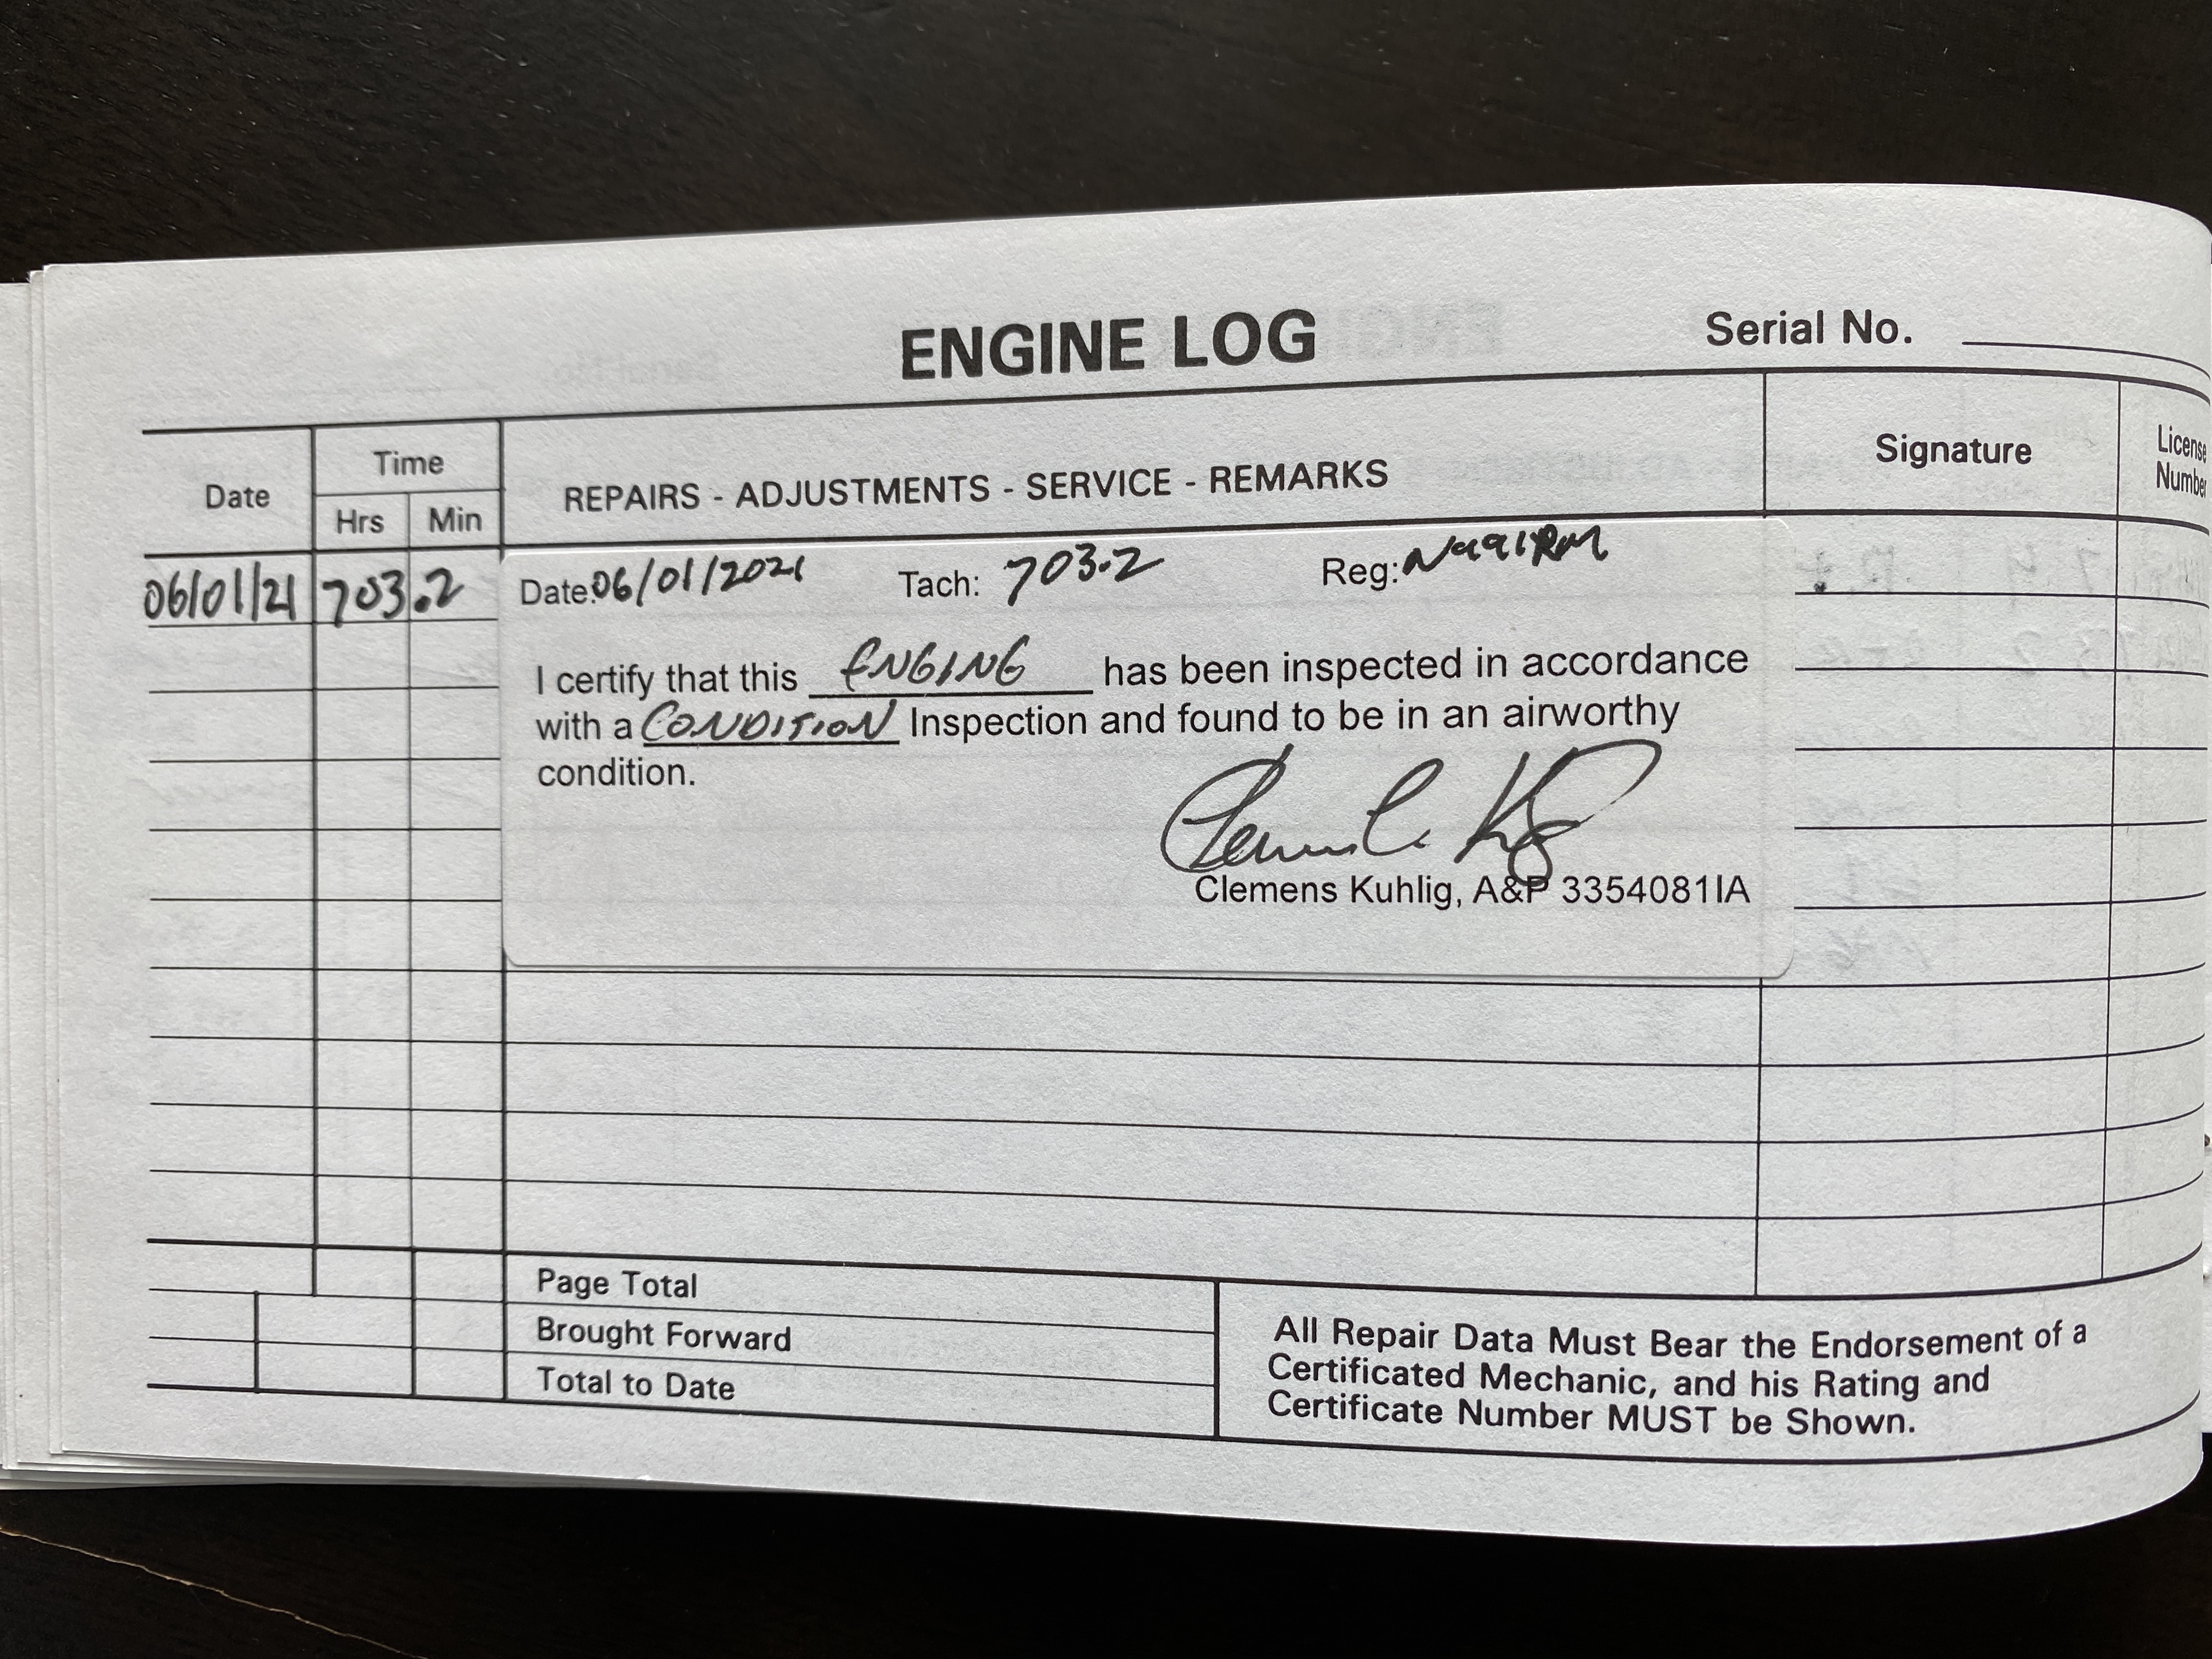 ENGINE LOG
Serial No.
Date
Time
Hrs Min
REPAIRS - ADJUSTMENTS - SERVICE - REMARKS
Signature
License Number
06/01/21 703.2
Date: 06/01/2021 Tach: 703.2 Reg: N991RM
I certify that this ENGINE has been inspected in accordance
with a CONDITION Inspection and found to be in an airworthy
condition.
Clemens Kuhlig, A&P 3354081IA
Page Total
Brought Forward
Total to Date
All Repair Data Must Bear the Endorsement of a
Certificated Mechanic, and his Rating and
Certificate Number MUST be Shown.